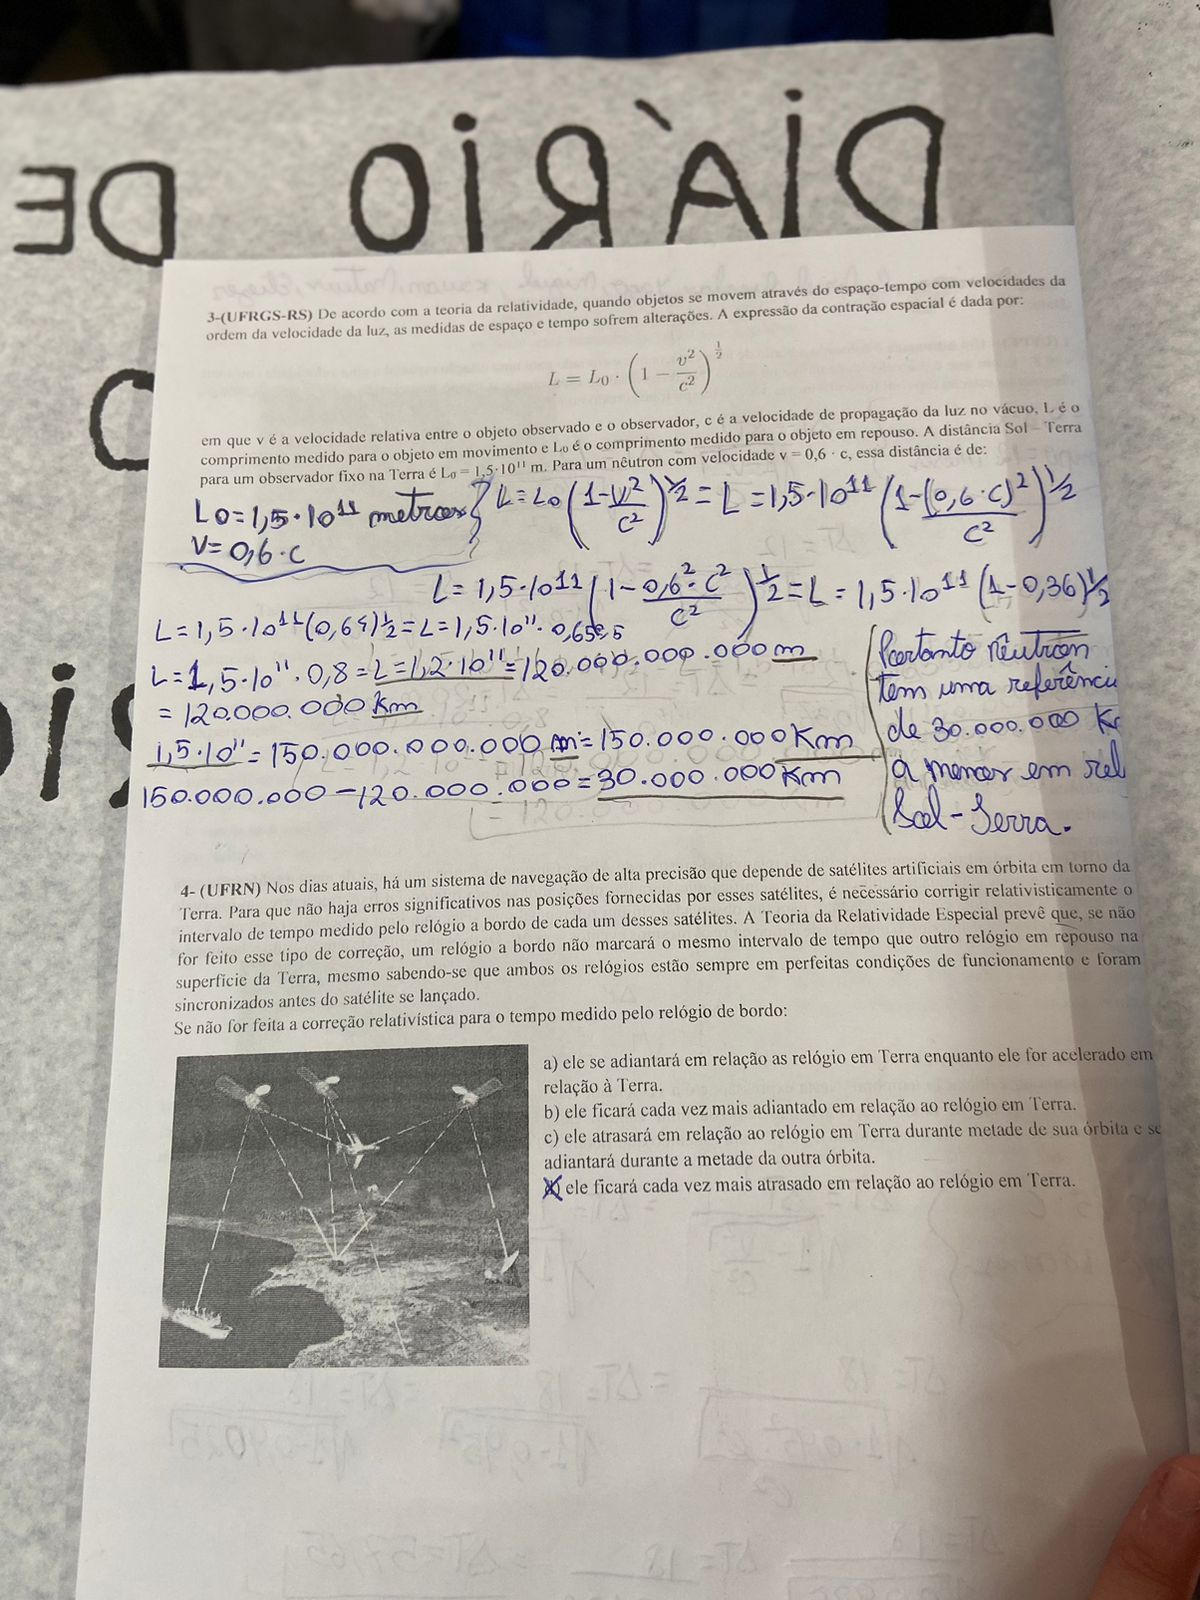 DIÁRIO DE
3-(UFRGS-RS) De acordo com a teoria da relatividade, quando objetos se movem através do espaço-tempo com velocidades da
ordem da velocidade da luz, as medidas de espaço e tempo sofrem alterações. A expressão da contração espacial é dada por:
L = L₀ · (1 − v²/c²)^½
em que v é a velocidade relativa entre o objeto observado e o observador, c é a velocidade de propagação da luz no vácuo, L é o
comprimento medido para o objeto em movimento e L₀ é o comprimento medido para o objeto em repouso. A distância Sol – Terra
para um observador fixo na Terra é L₀ = 1,5·10¹¹ m. Para um nêutron com velocidade v = 0,6 · c, essa distância é de:
L0=1,5·10¹¹ metros
V=0,6·c
L=L0(1-V²/c²)^½=L=1,5·10¹¹(1-(0,6·c)²/c²)^½
L=1,5·10¹¹(1-0,6²·c²/c²)^½=L=1,5·10¹¹(1-0,36)^½
L=1,5·10¹¹(0,64)^½=L=1,5·10¹¹·
L=1,5·10¹¹·0,8=L=1,2·10¹¹=120.000.000.000m
=120.000.000Km
1,5·10¹¹=150.000.000.000m=150.000.000Km
150.000.000-120.000.000=30.000.000Km
Portanto nêutron
tem uma
de 30.000.000
a menos em
Sol-Terra.
4- (UFRN) Nos dias atuais, há um sistema de navegação de alta precisão que depende de satélites artificiais em órbita em torno da
Terra. Para que não haja erros significativos nas posições fornecidas por esses satélites, é necessário corrigir relativisticamente o
intervalo de tempo medido pelo relógio a bordo de cada um desses satélites. A Teoria da Relatividade Especial prevê que, se não
for feito esse tipo de correção, um relógio a bordo não marcará o mesmo intervalo de tempo que outro relógio em repouso na
superfície da Terra, mesmo sabendo-se que ambos os relógios estão sempre em perfeitas condições de funcionamento e foram
sincronizados antes do satélite se lançado.
Se não for feita a correção relativística para o tempo medido pelo relógio de bordo:
a) ele se adiantará em relação as relógio em Terra enquanto ele for acelerado em
relação à Terra.
b) ele ficará cada vez mais adiantado em relação ao relógio em Terra.
c) ele atrasará em relação ao relógio em Terra durante metade de sua órbita e se
adiantará durante a metade da outra órbita.
d) ele ficará cada vez mais atrasado em relação ao relógio em Terra.